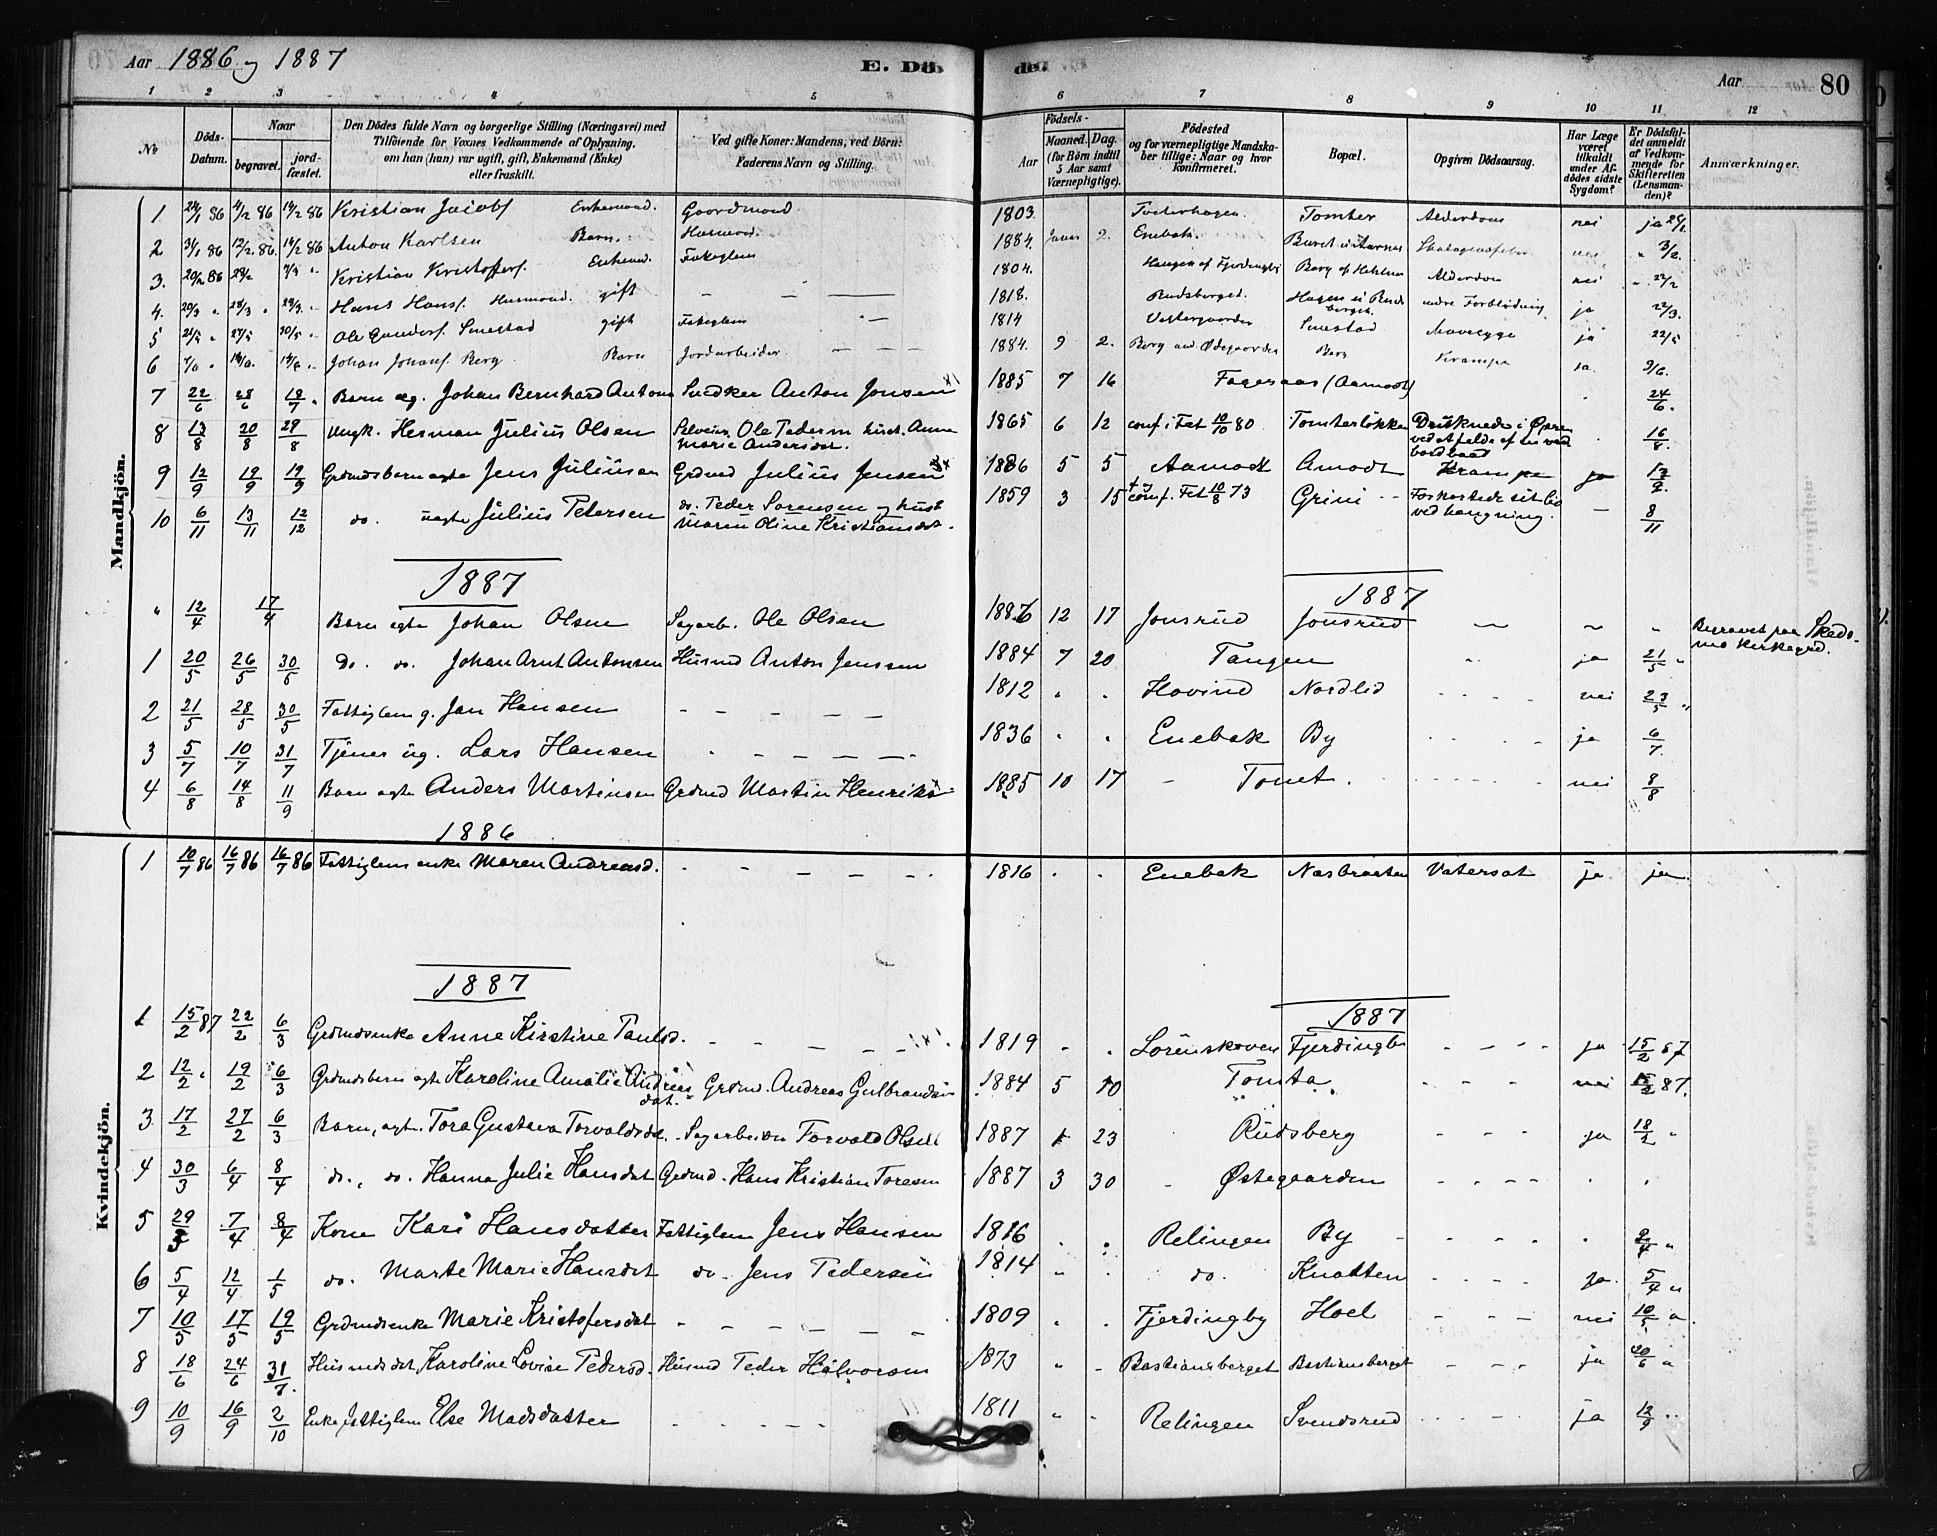 Aar 1886 og 1887 E. Dö de. Aar 80
1 2 3 4 5 6 7 8 9 10 11 12
No Döds-Datum. Naar begravet. jord-fæstet. Den Dödes fulde Navn og borgerlige Stilling (Næringsvei) med Tilföiende for Voxnes Vedkommende af Oplysning, om han (hun) var ugift, gift, Enkemand (Enke) eller fraskilt. Ved gifte Koner: Mandens, ved Börn: Faderens Navn og Stilling. Födsels- Aar Maaned. Dag. (for Börn indtil 5 Aar samt Værnepligtige). Födested og for værnepligtige Mandskaber tillige: Naar og hvor konfirmeret. Bopæl. Opgiven Dödsaarsag. Har Læge været tilkaldt under Afdödes sidste Sygdom? Er Dödsfaldet anmeldt af Vedkommende for Skifteretten (Lensmanden)? Anmærkninger.
Mandkjön.
1 Kristian Jacobs Enkemand. Gaardmand 1803. Tomter Alderdom nei
2 31/1 86 12/2 86. 14/2 86 Anton Karlsen Barn. Husmand. 1884. Januar 2. Enebak. 3/2.
3. 20/2 86 Kristian Kristoffers. Enkemd. Fatiglem 1804. Alderdom nei 22/2
4. 20/3 28/3 28/3 Hans Hans. Husmand. gift 1818. Rudsberget. ja 22/3.
5 Ole Gunders. Smestad gift Fatiglem 1814 Vestergaarden Smestad Mavesyge ja 22/5
6 Johan Johans. Berg Barn Jordarbeider 1884. 9 2. Berg Krampe ja. 9/6.
7 22/6 28/6 18/7 Barn æg. Johan Bernhard Antons Snedker Anton Jonsen 1885 7 16 Fagersaas (Aamodt) 24/6.
8 13/8 20/8 29/8 Ungk. Herman Julius Olsen Selveier Ole Pedersen hust. Anne Marie Andersdat. 1865 6 12 conf. i Fet 10/10 80 Tomterløkken Druknede i Øyeren 16/8
9 12/9 19/9 19/9 Grdmdsbarn ægte Jens Juliusen Grdmd Julius Jensen 1886 5 5 Aamodt Amodt Krampe ja 13/9.
10 6/11 13/11 12/12 do. uægte Julius Petersen do. Peder Sørensen og hust Maren Oline Kristiansdat. 1859 3 15 conf. Fet 10/8 73 Grini Forkortede sit liv ved hængning. 8/11
1887 1887
" 12/4 17/4 Barn ægte Johan Olsen Sagarb. Ole Olsen 1886 12 17 Jonsrud Jonsrud Begravet paa Skedsmo Kirkegrd.
1 20/5 26/5 30/5 do. do. Johan Arnt Antonsen Husmd Anton Jenssen 1884 7 20 Tangen ja 21/5 "
2 21/5 28/5 30/5 Fattiglem g. Jan Hansen 1812 Hovind Nordlid nei 23/5 "
3 5/7 10/7 31/7 Tjener ug. Lars Hansen 1836 Enebak By ja 6/7.
4 6/8 14/8 11/9 Barn ægte Anders Martinsen Grdmd Martin Henriks 1885 10 17 Tomt. nei 8/8
Kvindekjön.
1886
1 10/7 86 16/7 86 16/7 86 Fattiglems enke Maren Andreasd. 1816 Enebak Næsbraaten Vatersot ja ja
1887 1887
1 15/2 87 22/2 6/3 Grdmdsenke Anne Kirstine Paulsd. 1819 Lørenskoven Fjerdingby ja 15/2 87
2 12/2 19/2 6/3 Grdmdsbarn ægte Karoline Amalie Andreasdat. Grdmd. Andreas Gulbrandsen 1884 5 10 Tomta nei 87.
3 17/2 27/2 6/3 Barn, ægte. Tora Gustava Torvaldsdat. Sagarbeider Torvald Olsen 1887 1 23 Rudsberg ja 18/2 "
4 30/3 6/4 8/4 do. do. Hanna Julie Hansdat Grdmd. Hans Kristian Toresen 1887 3 30 Østegaarden
5 29/3 7/4 8/4 Kone Kari Hansdatter Fattiglem Jens Hansen 1816 Relingen By 2/4 "
6 5/4 12/4 1/5 do. Marte Marie Hansdat do. Jens Pedersen 1814 do. Knatten ja. 5/4 "
7 10/5 17/5 19/5 Grdmdsenke Marie Kristofersdat 1809 Fjerdingby Hoel nei 10/5 "
8 18/6 24/6 31/7. Husmdsdat. Karoline Lovise Pedersd. Husmd Peder Halvorsen 1873 Bastiansberget Bastiansberget ja 20/6 "
9 10/9 16/9 2/10 Enke fattiglem Else Madsdatter 1811 Relingen Svendsrud ja 12/9 "